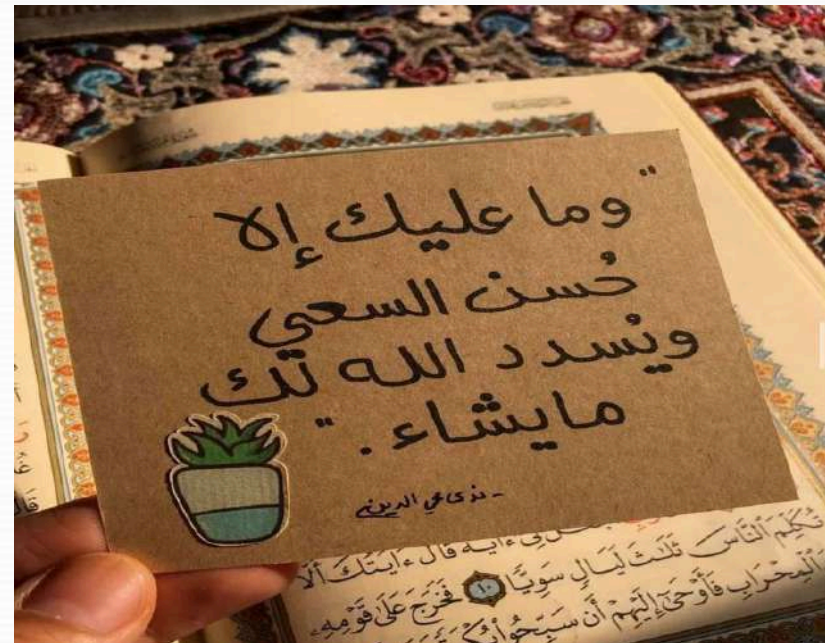 "وما عليك إلا
حُسن السعي
ويُسدد الله لك
ما يشاء."
قَالَ ءَايَتُكَ أَلَّا
تُكَلِّمَ ٱلنَّاسَ ثَلَٰثَ لَيَالٍ سَوِيًّا ١٠ فَخَرَجَ عَلَىٰ قَوْمِهِۦ
ٱلْمِحْرَابِ فَأَوْحَىٰٓ إِلَيْهِمْ أَن سَبِّحُوا۟